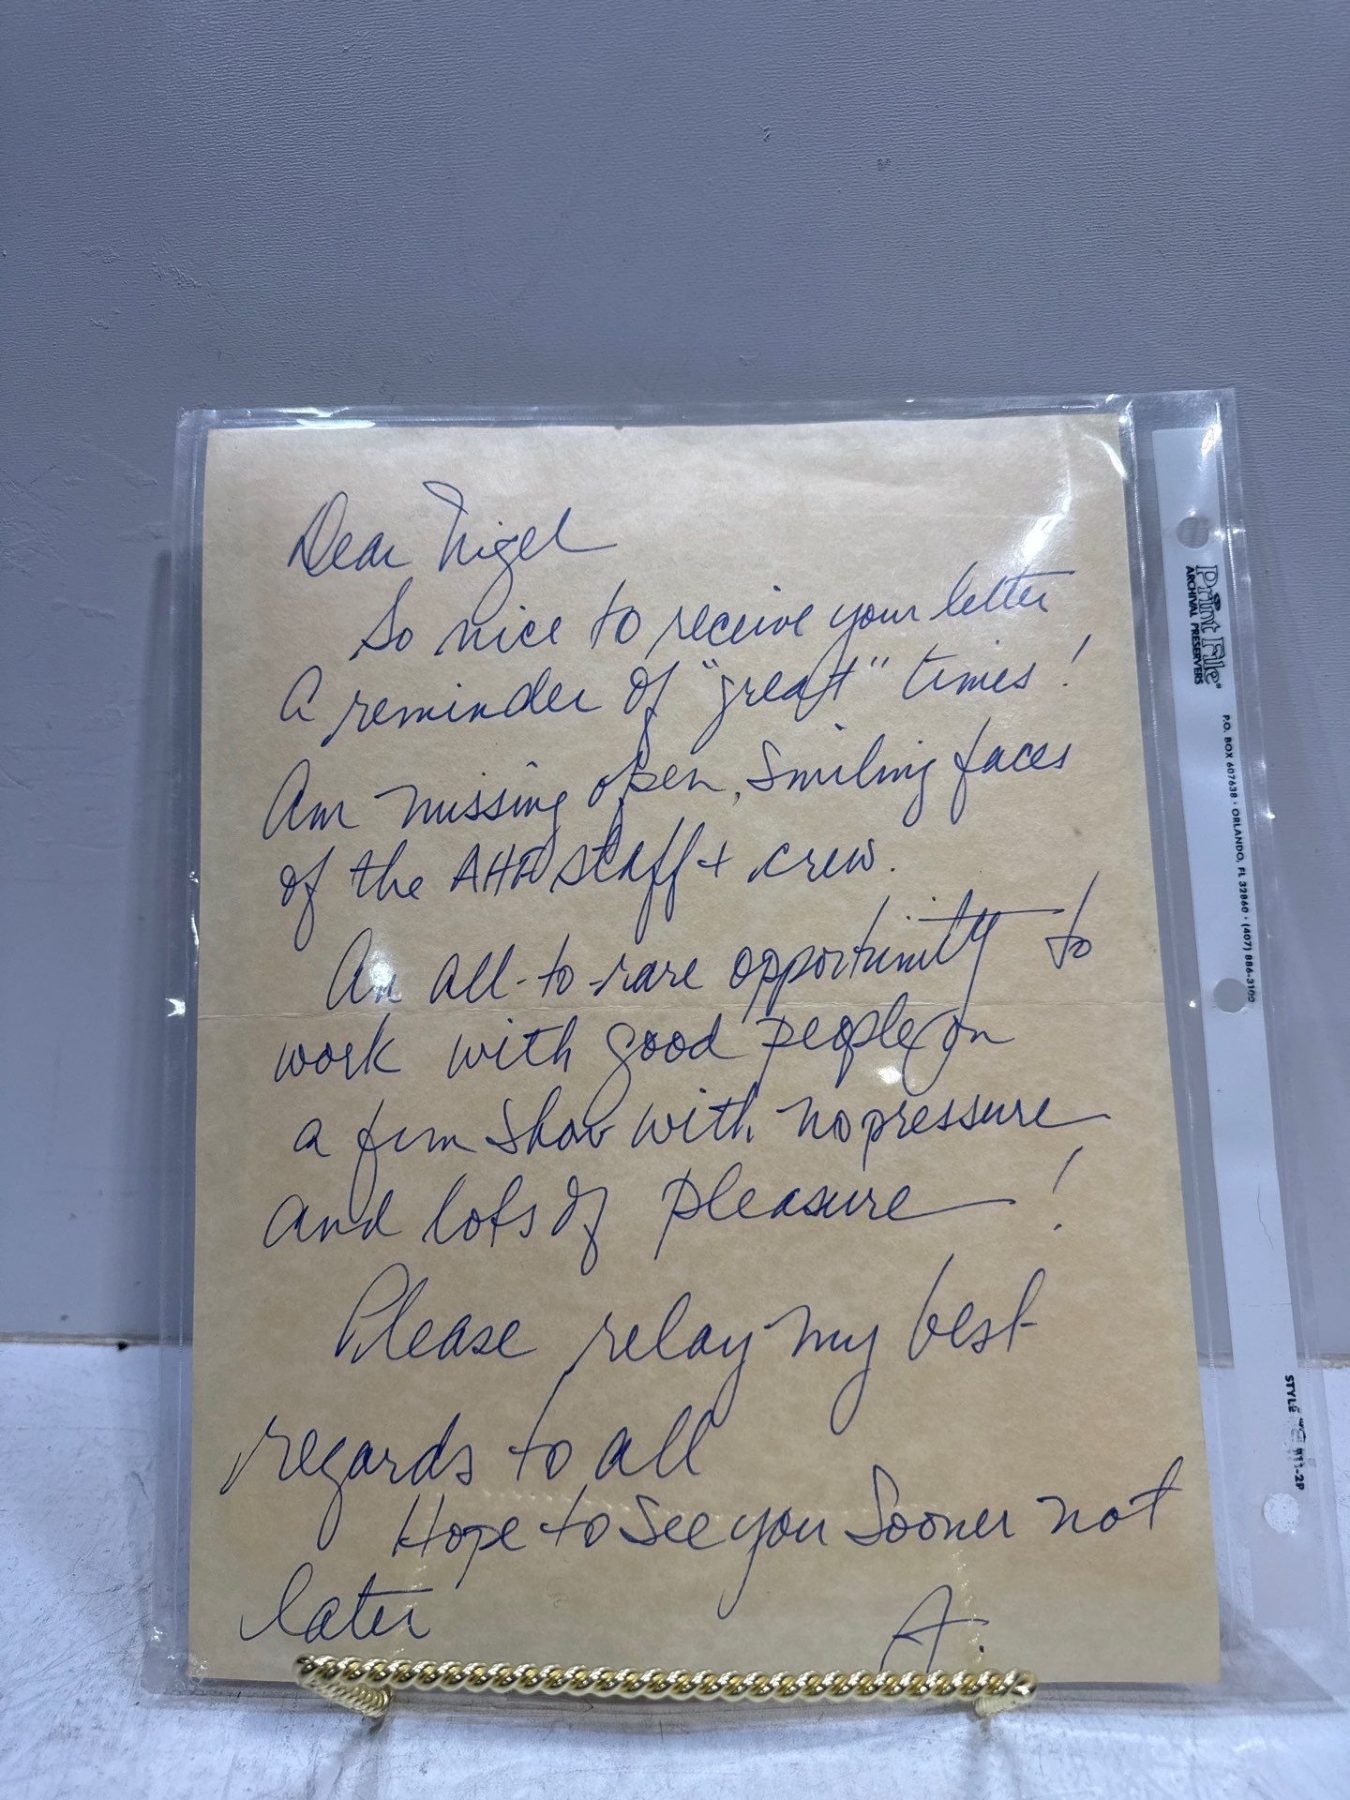 Dear Nigel
So nice to receive your letter
A reminder of "great" times!
Am missing open, smiling faces
of the AHA staff + crew.
An all-to-rare opportunity to
work with good people on
a fun show with no pressure
and lots of pleasure!
Please relay my best
regards to all
Hope to see you sooner not
later
A.
Print File®
ARCHIVAL PRESERVERS
P.O. BOX 607638 • ORLANDO, FL 32860 • (407) 886-3100
STYLE